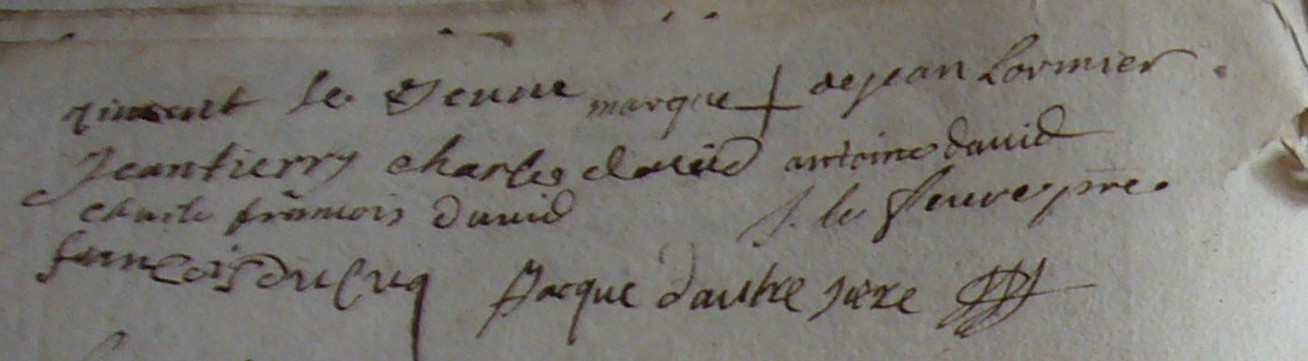 vincent le Jeune marque + de jean Lormier
Jean tierry charles david antoine david
charle francois david J. le feuvre pre
francois ducrocq Jacque dautre